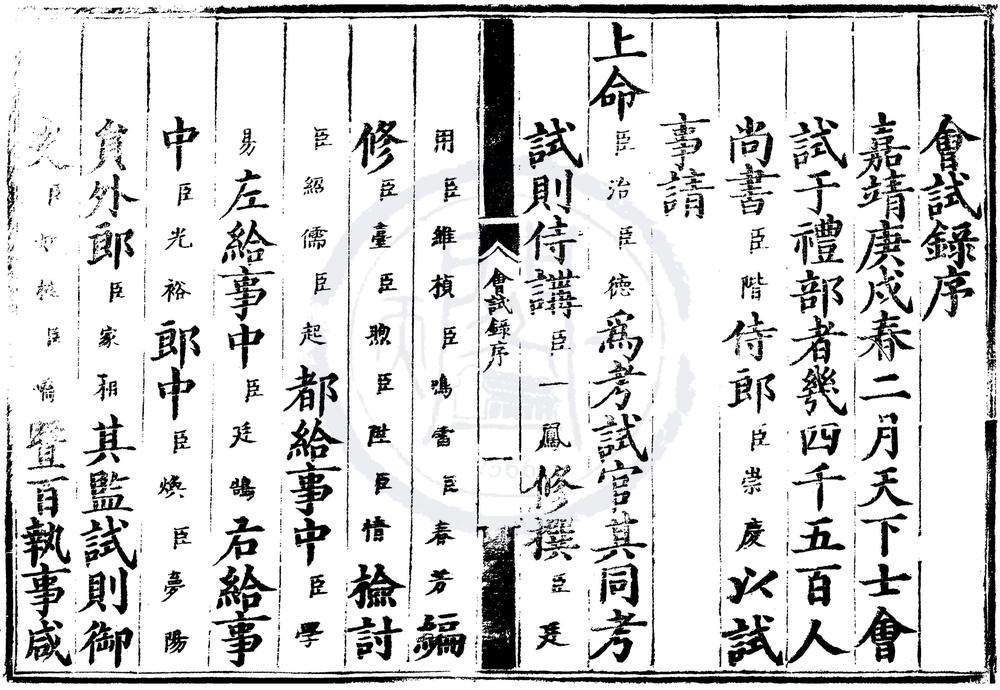 會試錄序
嘉靖庚戍春二月天下士會
試于禮部者幾四千五百人
尚書臣階侍郎臣崇慶以試
事請
上命臣治臣德爲考試官其同考
試則侍講臣一鳳修撰臣廷
會試錄序
一
用臣維楨臣鳴雷臣春芳編
修臣臺臣煦臣陞臣悟檢討
臣紹儒臣起都給事中臣學
易左給事中臣廷鵠右給事
中臣光裕郎中臣煥臣夢陽
員外郎臣家相其監試則御
史臣臣暨百執事咸